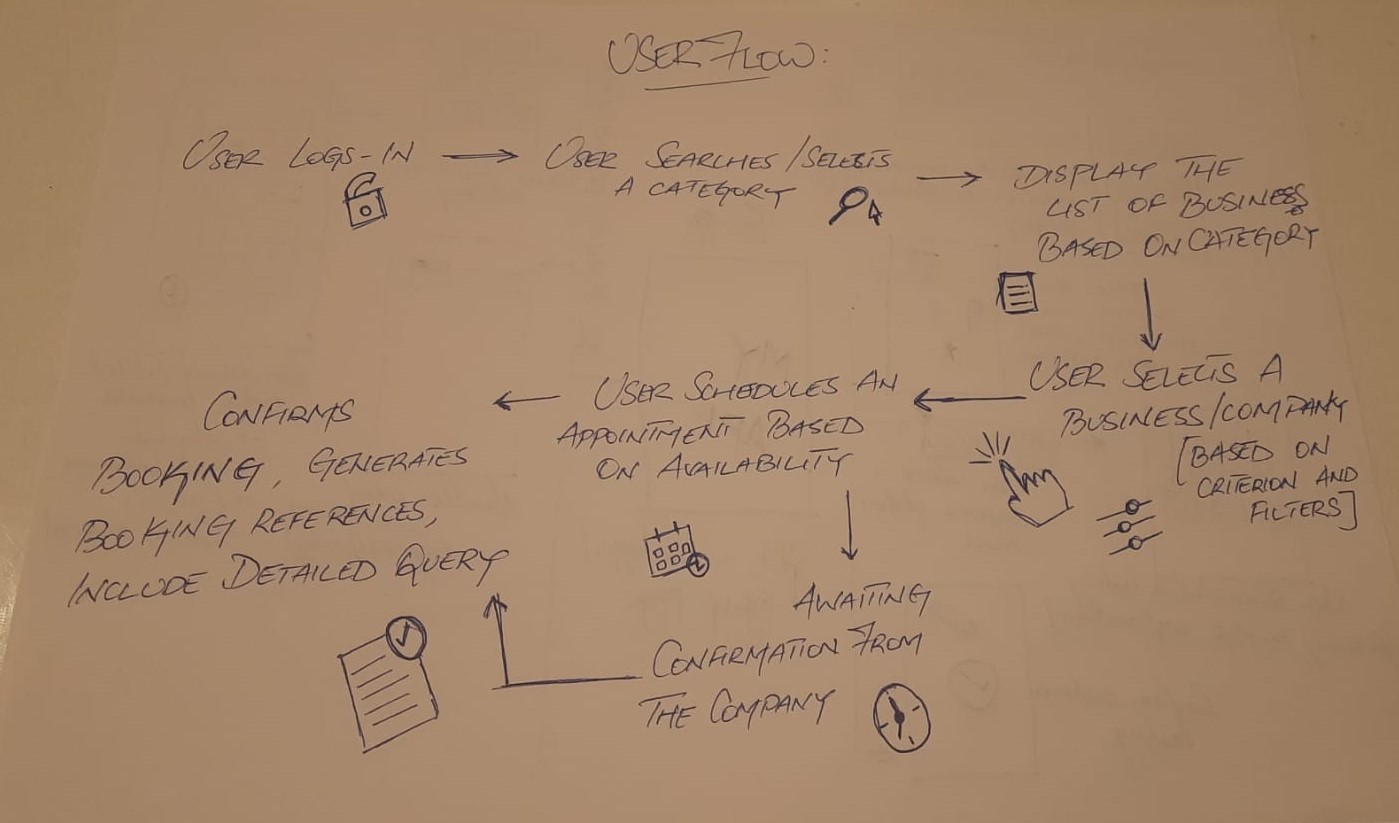 USER FLOW:
USER LOGS-IN
USER SEARCHES/SELECTS
A CATEGORY
DISPLAY THE
LIST OF BUSINESS
BASED ON CATEGORY
USER SELECTS A
BUSINESS/COMPANY
[BASED ON
CRITERION AND
FILTERS]
USER SCHEDULES AN
APPOINTMENT BASED
ON AVAILABILITY
AWAITING
CONFIRMATION FROM
THE COMPANY
CONFIRMS
BOOKING, GENERATES
BOOKING REFERENCES,
INCLUDE DETAILED QUERY